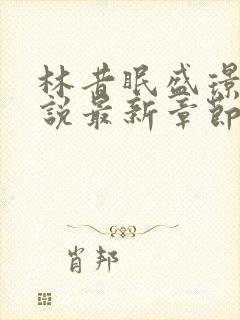 林昔眠盛璟
說最新章節
肖邦